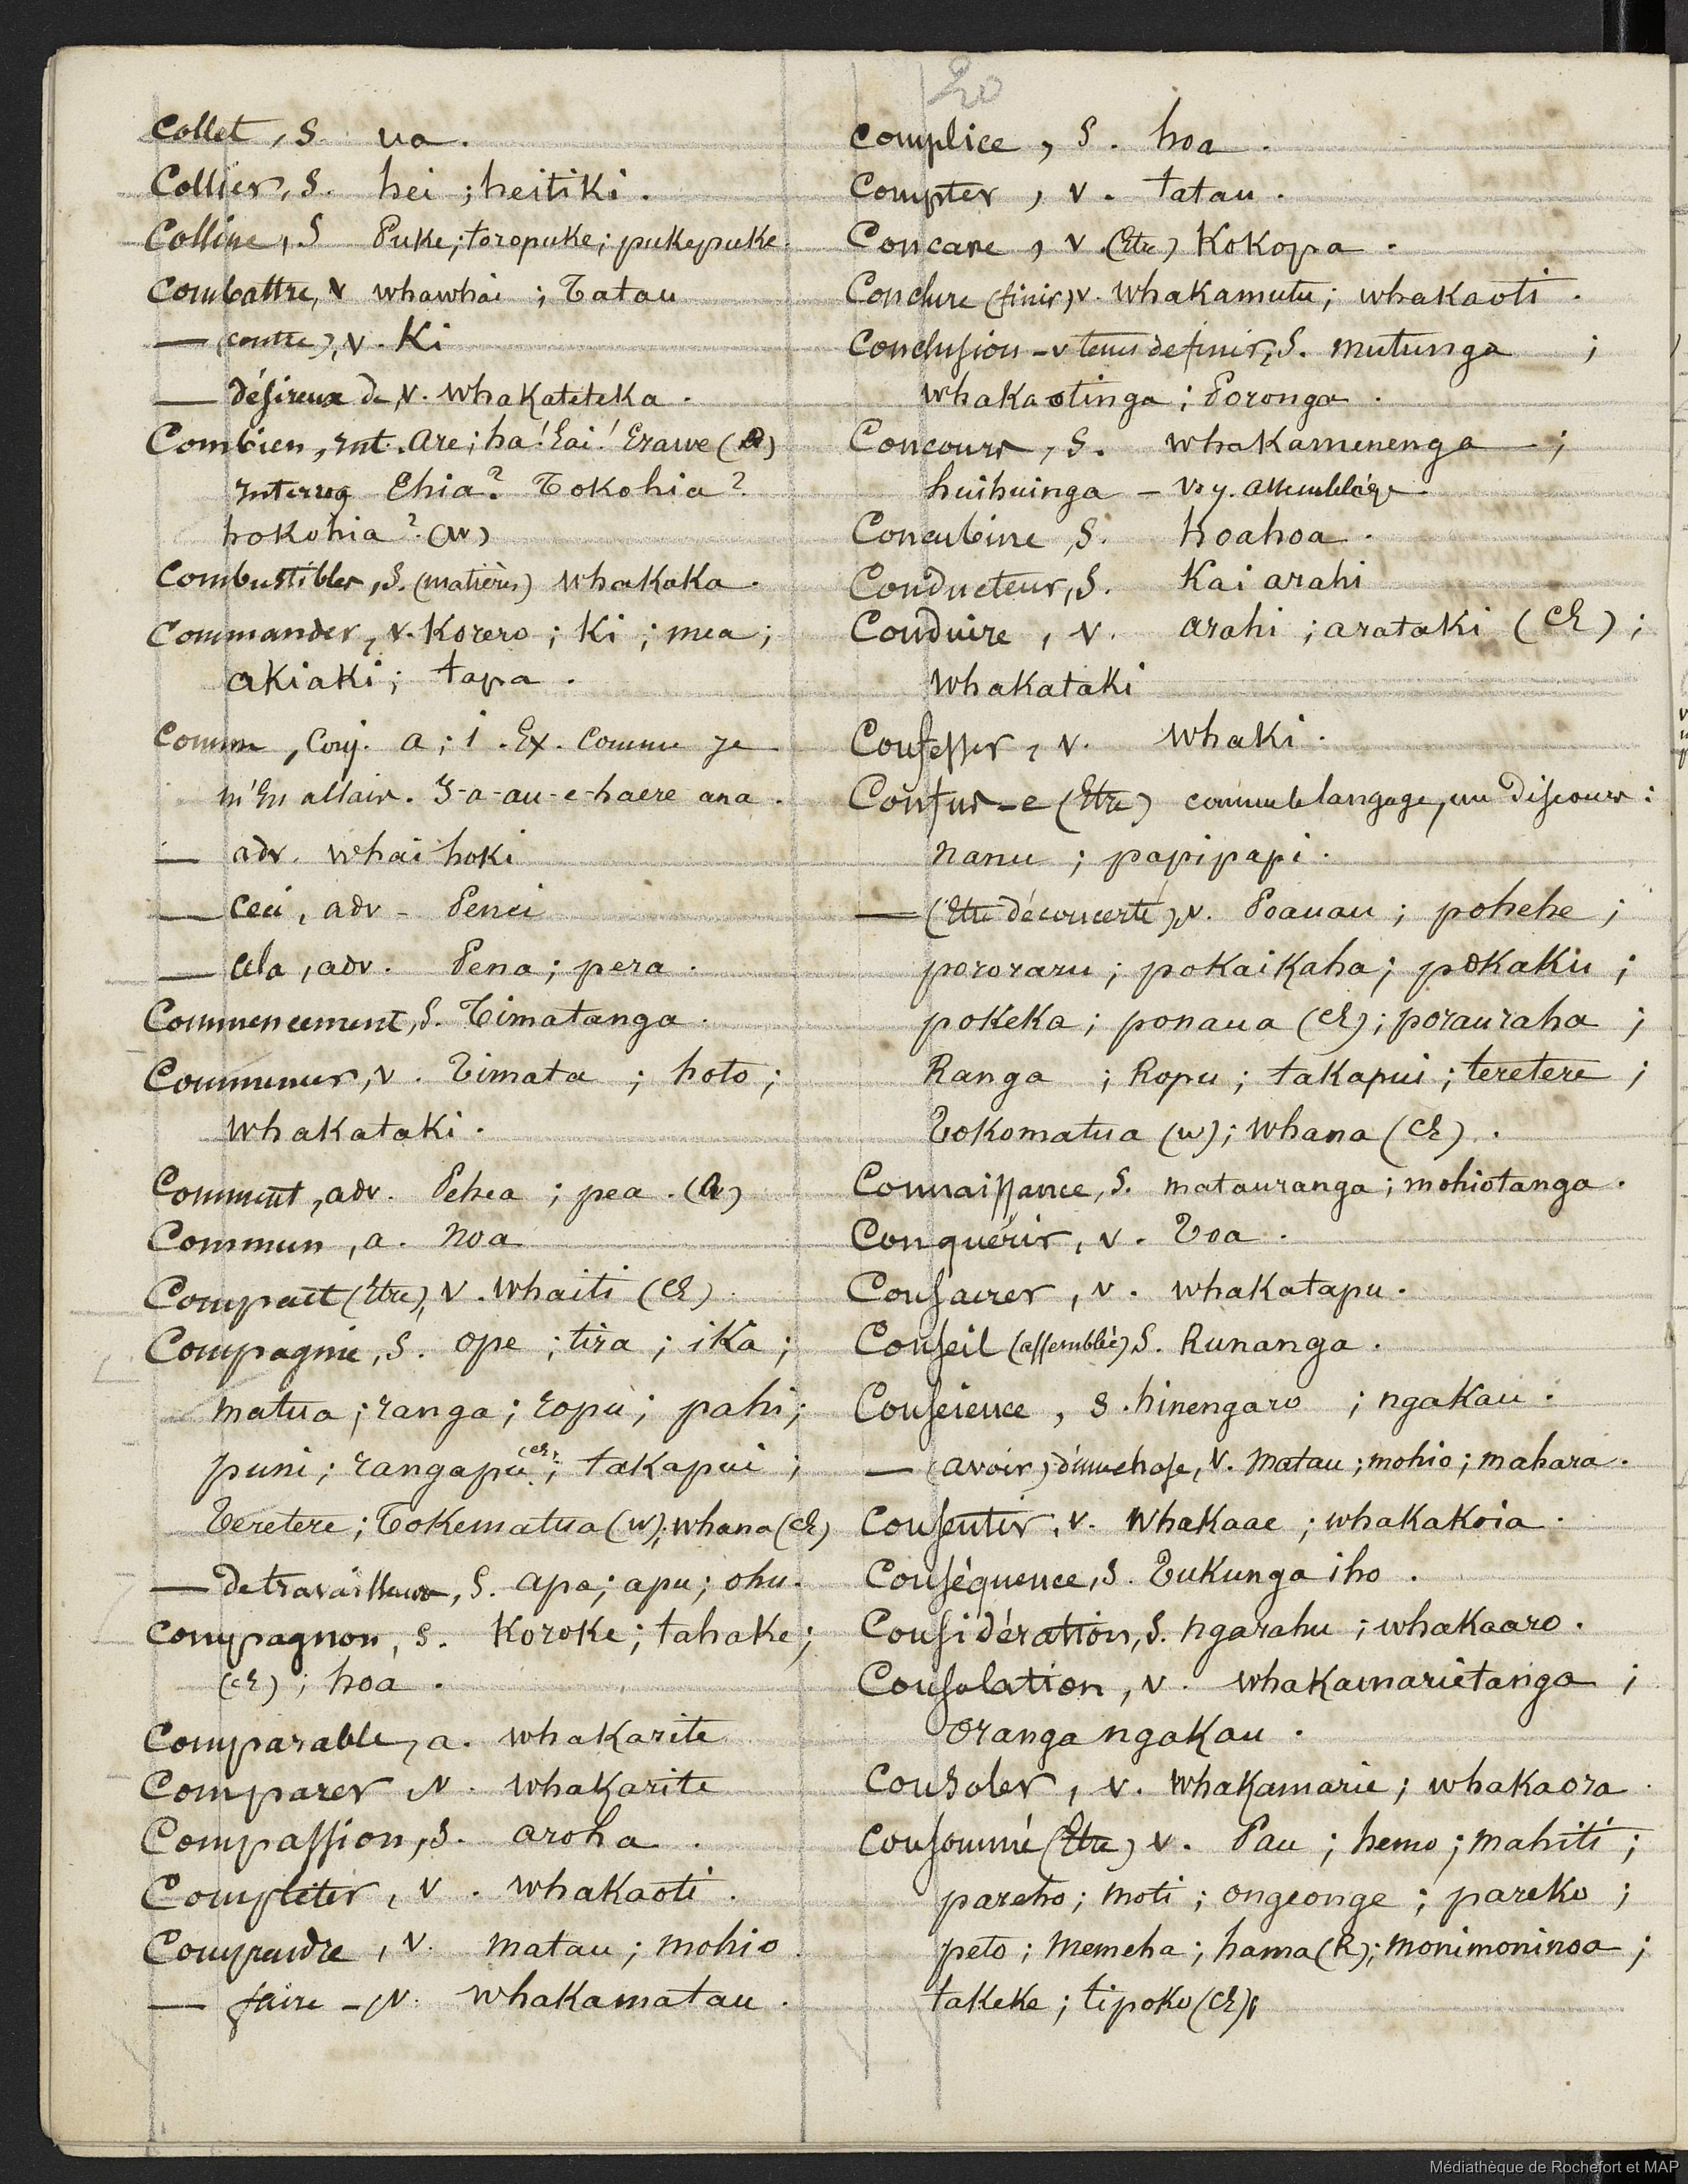 20
Collet, s. ua.
Collier, s. hei ; heitiki.
Colline, s Puke ; toropuke ; pukepuke.
Combattre, v whawhai ; Tatau
— (contre), v. Ki
— désireux de, v. whakateteka.
Combien, int. are ; ha ! Eai ! Erawe (A)
interrog Ehia ? Tokohia ?
hokohia ? (W)
Combustibles, s. (matières) whakaka.
Commander, v. Korero ; Ki ; mea ;
akiaki ; tapa.
Comme, Conj. a ; i. Ex. Comme je
m'en allais. I-a-au-e-haere ana.
— adv. whai hoki
— ceci, adv - Penei
— cela, adv. Pena ; pera.
Commencement, s. Timatanga.
Commencer, v. Timata ; hoto ;
whakataki.
Comment, adv. Pehea ; pea. (A)
Commun, a. noa
Compact (Etre), v. whaiti (Ch)
Compagnie, s. ope ; tira ; ika ;
matua ; ranga ; ropu ; pahi ;
puni ; rangapu (ch) ; takapui ;
Teretere ; Tokematua (W) ; whana (Ch)
— de travailleurs, s. apa ; apu ; ohu.
Compagnon, s. Koroke ; tahake ;
(Ch) ; hoa.
Comparable, a. whakarite
Comparer, v. whakarite
Compassion, s. aroha.
Completer, v. whakaoti.
Comprendre, v. matau ; mohio.
— faire -, v. whakamatau.
Complice, s. hoa.
Compter, v. tatau.
Concave, v (Etre) Kokopa.
Conclure (finir) v. whakamutu ; whakaoti.
Conclusion - v tems de finir, s. mutunga ;
whakaotinga ; Poronga.
Concours, s. whakamenenga ;
huihuinga - Voy. assemblage
Concubine, s. hoahoa.
Conducteur, s. Kai arahi
Conduire, v. arahi ; arataki (Ch) ;
whakataki
Confesser, v. whaki.
Confus-e (Etre) comme le langage, un discours :
nanu ; papipapi.
— (Etre déconcerté), v. Poauau ; pohehe ;
pororaru ; pokaikaha ; pokaku ;
pokeka ; ponaua (Ch) ; porauraha ;
Ranga ; Ropu ; takapui ; teretere ;
Tokomatua (W) ; whana (Ch).
Connaissance, s. matauranga ; mohiotanga.
Conquérir, v. Toa.
Consacrer, v. whakatapu.
Conseil (assemblée) s. Runanga.
Conscience, s. hinengaro ; ngakau.
— (avoir) d'une chose, v. matau ; mohio ; mahara.
Consentir, v. whakaae ; whakakoia.
Conséquence, s. Tukunga iho.
Considération, s. ngarahu ; whakaaro.
Consolation, v. whakamarietanga ;
oranga ngakau.
Consoler, v. whakamarie ; whakaora.
Consommé (Etre) v. Pau ; hemo ; mahiti ;
pareho ; moti ; ongeonge ; pareko ;
peto ; memeha ; hama (R) ; monimoninoa ;
takeke ; tipoko (Ch).
Médiathèque de Rochefort et MAP